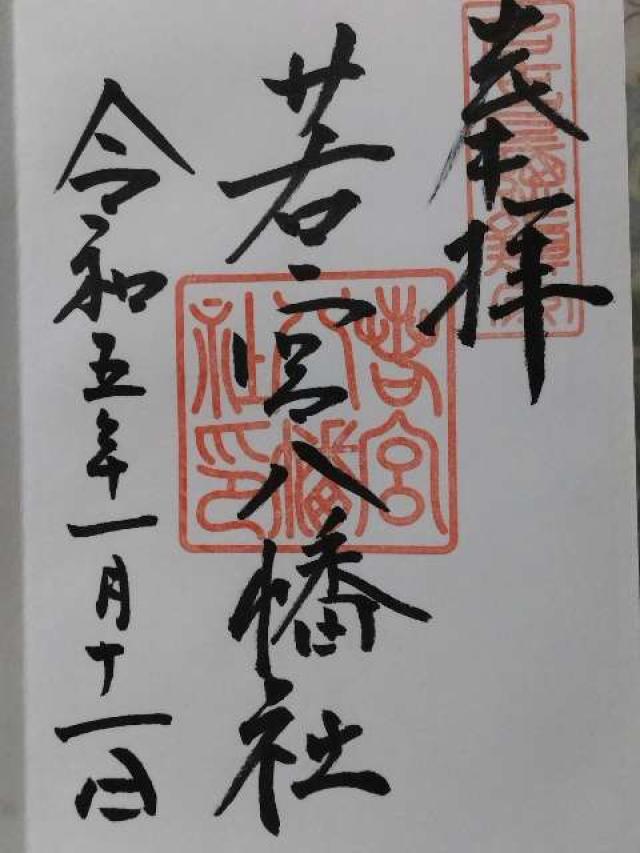 奉拝
若宮八幡社
若宮八幡社印
令和五年一月十一日